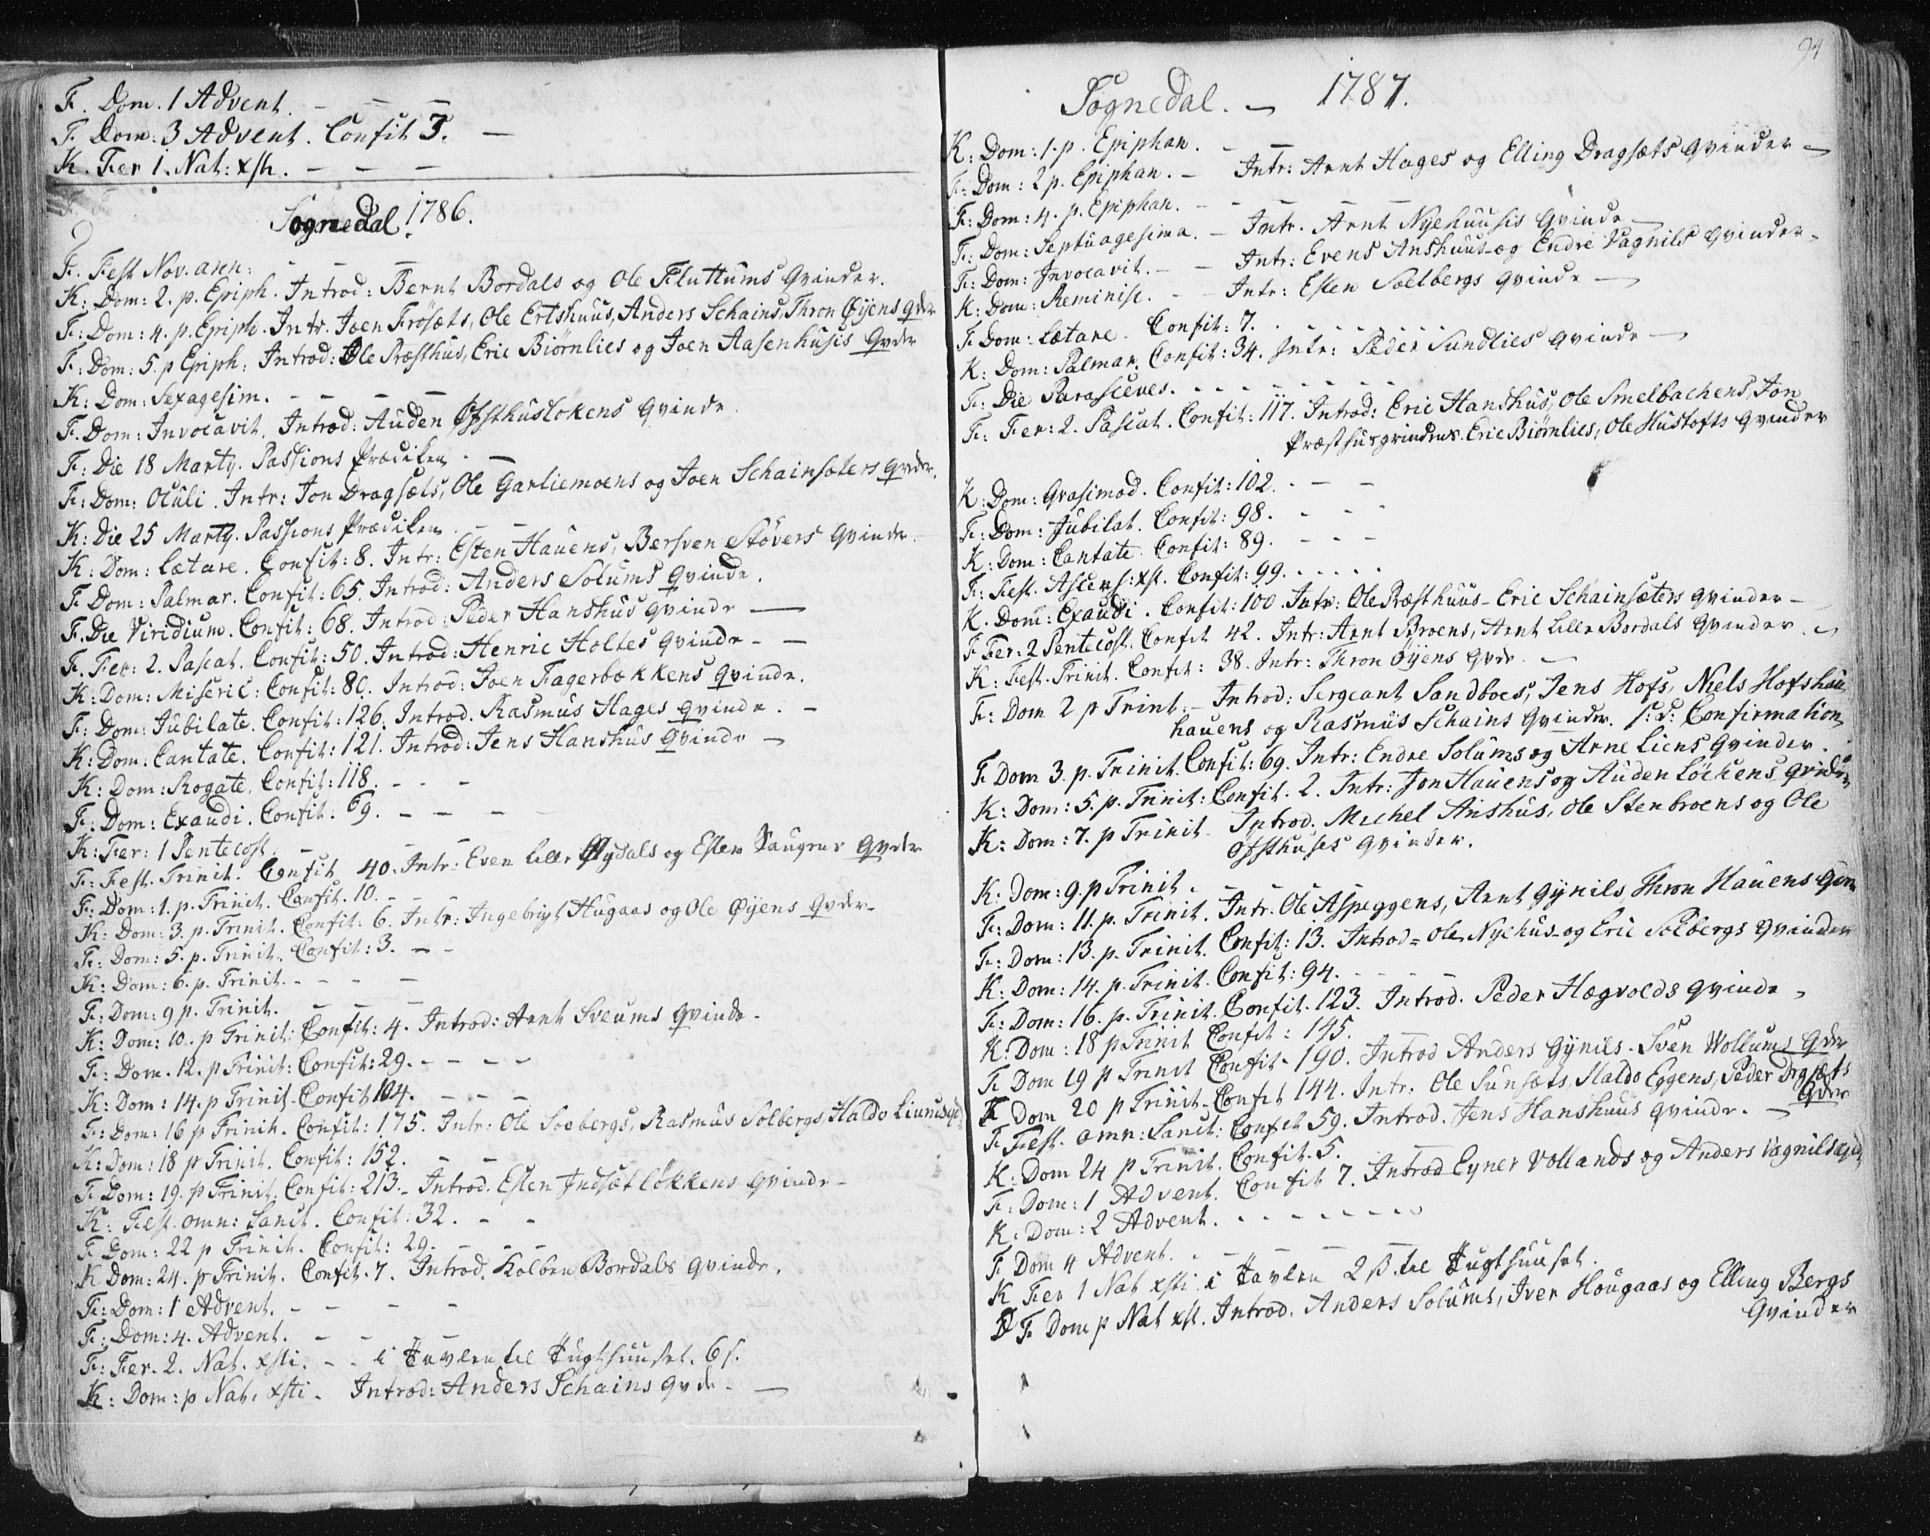 F. Dom. 1 Advent. – – –
F. Dom: 3 Advent. Confit 3. –
K. Fer 1. Nat: xsti. – – –
Sognedal 1786.
F. Fest Nov. ann: – – –
K: Dom: 2. p. Epiph. Introd: Bernt Bordals og Ole Fluttums Qvinder.
F: Dom: 4. p. Epiph. Intr. Joen Frösæts, Ole Ertshuus, Anders Schains, Thron Øyens Qvdr
F: Dom: 5. p Epiph: Introd: Ole Præsthus, Eric Biørnlies og Joen Aasenhusis Qvdr
K: Dom: Sexagesim. – – – –
F. Dom: Invocavit. Introd: Auden Øfsthuslökens Qvinde.
F: Die 18 Marty. Passions Prædiken. –
F: Dom: Oculi. Intr: Jon Dragsæts, Ole Garliemoens og Joen Schainsæters Qvdr.
K: Die 25 Marty. Passions Prædiken. – –
K: Dom: Lætare. Confit: 8. Intr: Esten Hauens, Bersven Støvers Qvinde.
F Dom: Palmar. Confit: 65. Introd: Anders Solums Qvinde.
F. Die Viridium. Confit: 68. Introd: Peder Hanshus Qvinde –
F. Fer: 2. Pascat. Confit: 50. Introd: Henric Holtes Qvinde – –
K: Dom: Miseric: Confit: 80. Introd: Joen Fagerbækkens Qvinde.
F: Dom: Jubilate. Confit: 126. Introd. Rasmus Hages Qvinde. –
K: Dom. Cantate. Confit: 121. Introd: Jens Hanshus Qvinde –
K: Dom: Rogate. Confit: 118. – – –
F: Dom: Exaudi. Confit: 69. – – –
K: Fer: 1 Pentecost. – – –
F: Fest. Trinit. Confit 40. Intr: Even Lille Øydals og Esten Haugens Qvdr
F: Dom: 1. p. Trinit. Confit. 10. – – –
K: Dom: 3. p. Trinit. Confit: 6. Intr: Ingebrigt Hugaas og Ole Øyens Qvdr –
F: Dom: 5. p. Trinit. Confit: 3. – –
K: Dom: 6. p. Trinit. – – – –
F: Dom: 9 p. Trinit. – – –
K: Dom: 10. p Trinit: Confit: 4. Introd: Arnt Sveums Qvinde –
F: Dom. 12. p Trinit: Confit: 29. – – – –
K: Dom: 14. p Trinit. Confit 104. – – –
F: Dom: 16 p Trinit. Confit: 175. Intr: Ole Soebergs, Rasmus Solbergs, Haldo Liums
K: Dom: 18 p Trinit. Confit: 152. – –
F Dom: 19. p Trinit. Confit: 213. – Introd. Esten Indsætløkkens Qvinde –
K: Fest. omn: Sanct. Confit: 32. – –
F Dom: 22 p Trinit. Confit: 29. – – –
K Dom: 24. p Trinit. Confit. 7. Introd. Kolben Bordals Qvinde.
F: Dom: 1 Advent. – – – –
F: Dom: 4. Advent. – – –
F: Fer. 2. Nat. xsti. – – i Tavlen til Tugthuuset. 6 s.
K: Dom: p Nat. xsti – Introd: Anders Schains Qvde. –
94
Sognedal. – 1787.
K: Dom: 1. p. Epiphan. – –
F: Dom: 2 p. Epiphan. – Intr: Arnt Hages og Elling Dragsæts Qvinder –
F: Dom: 4. p. Epiphan. – – – – –
F: Dom: Septuagesima. – Intr. Arnt Nyehuusis Qvinde –
F: Dom: Invocavit. – – Intr: Evens Anshuus og Endre Vagnils Qvinder –
K: Dom: Reminisc. – – Intr: Esten Soelbergs Qvinde –
F Dom: Lætare. Confit: 7. . . . . . . . .
K: Dom: Palmar. Confit: 34. Intr: Peder Sundlies Qvinde –
F: Die Parasceves. . . . . . . . . .
F: Fer: 2. Pascat. Confit: 117. Introd: Eric Hanshus, Ole Smelbackens, Jon
Præsthusgrindens. Eric Biørnlies, Ole Hustofts Qvinder
K: Dom: Qvasimod. Confit: 102. – – –
F: Dom: Jubilat. Confit: 98. – – –
K: Dom: Cantate. Confit: 89. – – –
F: Fest. Ascens: xst. Confit: 99. . . . . .
K. Dom: Exaudi. Confit: 100. Intr: Ole Præsthuus – Eric Schainsæters Qvinder –
F Fer: 2 Pentecost. Confit 42. Intr: Arnt Broens, Arnt Lille Bordals Qvinder. –
K: Fest. Trinit. Confit: 38. Intr: Thron Øyens Qvdr. –
F: Dom 2 p Trinit. – Introd: Sergeant Sandboes, Jens Hofs, Niels Hofshau
hauens og Rasmus Schains Qvinder. s: d: Confirmation
F. Dom 3. p. Trinit. Confit: 69. Intr: Endre Solums og Arne Liens Qvinder.
K: Dom: 5. p. Trinit: Confit: 2. Intr: Jon Hauens og Auden Löckens Qvinder
K: Dom: 7. p Trinit. Introd. Michel Anshus, Ole Stenbroens og Ole
Øfsthuses Qvinder.
K: Dom: 9. p Trinit. – – – – –
F: Dom: 11. p. Trinit. Intr. Ole Aspeggens, Arnt Gynils, Thron Hauens Qvn
F: Dom: 13. p. Trinit. Confit: 13. Introd = Ole Nyehus og Eric Solbergs Qvinder
K: Dom: 14. p. Trinit. Confit: 94. – – – –
F: Dom: 16. p. Trinit. Confit. 123. Introd. Peder Hægvolds Qvinde –
K: Dom: 18 p Trinit Confit: 145.
F Dom 19 p Trinit Confit – 190. Introd Anders Gynils – Sven Wollums Qvdr
K Dom 20 p Trinit. Confit 144. Intr. Ole Sunsæts, Haldo Eggens, Peder Dragsæts
Qvdr
F. Fest. omn: Sanct: Confit 59. Introd. Jens Hanshuus Qvinde. –
K: Dom 24 p Trinit. Confit. 5.
F: Dom: 1 Advent. Confit 7. Introd Eyner Vollands og Anders Vagnils
K: Dom: 2 Advent. . . . . . . . .
F Dom 4 Advent. . – – – – –
K Fer 1 Nat xsti. i Tavlen 2 ß. til Tugthuuset.
F Dom p Nat xst. Introd. Anders Solums, Iver Hougaas og Elling Bergs
Qvinder